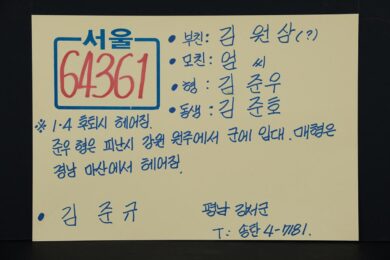 서울
64361
• 부친: 김 원삼(?)
• 모친: 엄 씨
• 형 : 김 준우
• 동생: 김 준호
※ 1·4 후퇴시 헤어짐.
준우 형은 피난시 강원 원주에서 군에 입대. 매형은
경남 마산에서 헤어짐.
• 김 준규
평남 강서군
T: 송탄 4-7181.